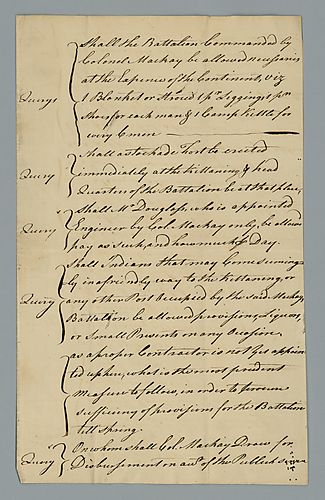 Shall the Battalion Commanded by
Colonel Mackay be allowed necessaries
at the Expence of the Continent, viz
Query 1 Blanket or Stroud 1 pr Leggings 1 pr
Shoes for each man & 1 Camp Kettle for
every 6 men
Shall a stockade Fort be erected
Query immediately at the Kittaning & head
Quarters of the Battalion be at that place
Shall Mr Douglass, who is appointed
Query Engineer by Col. Mackay only, be allowed
pay as such, and how much p Day.
Shall Indians that may Come seeming
ly in a friendly way to the Kittaning, or
Query any other Post Occupied by the said Mackay
Battalion be allowed provisions, Liquors,
or Small Presents on any Occasion
as a proper Contractor is not yet appoin
ted up here, what is the most prudent
Measure to follow, in order to procure
sufficiency of provisions for the Battalion
till Spring.
On whom shall Col. Mackay Draw for
Query Disbursement on acct of the Publick